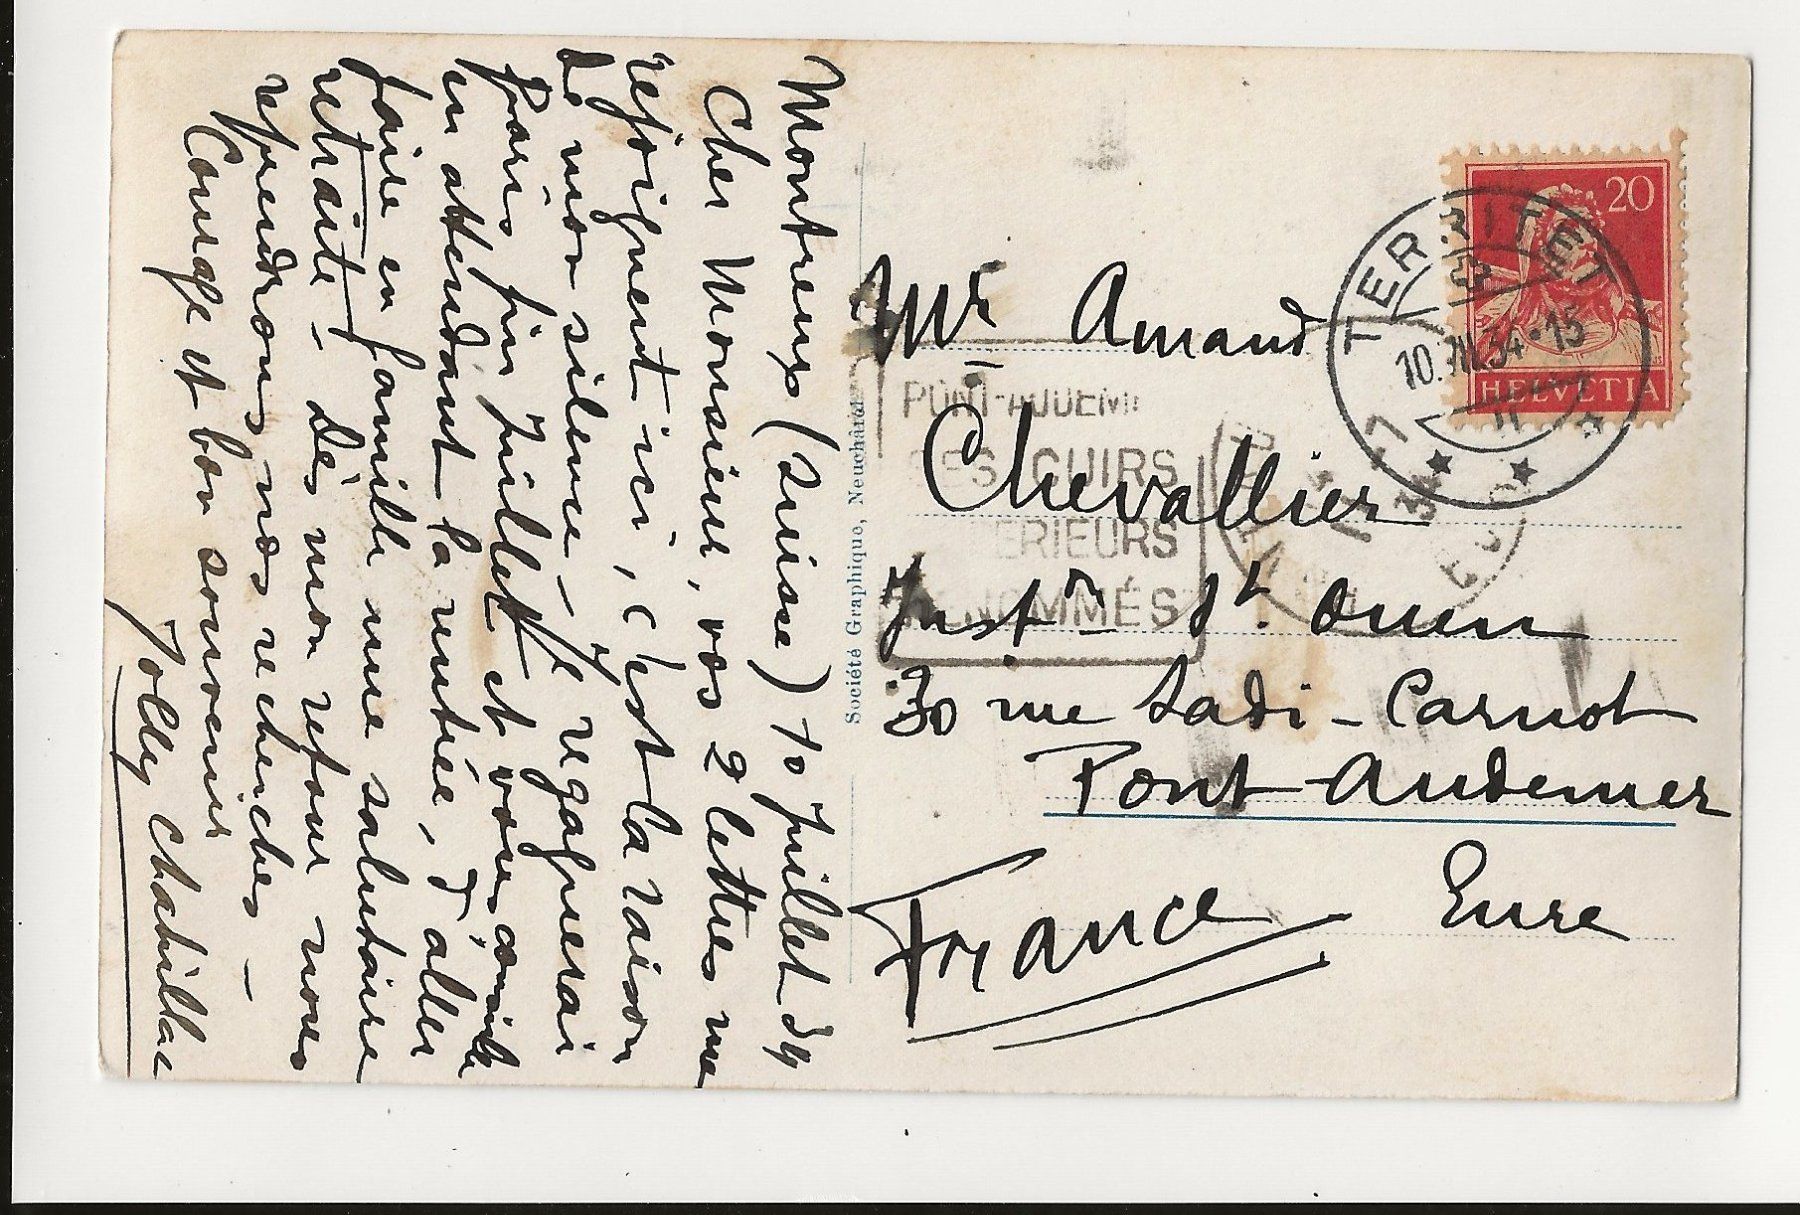 Montreux (Suisse) 10 Juillet 34
Cher Monsieur, vos 2 lettres me
rejoignent ici, c'est la raison
de mon silence - Je regagnerai
Paris fin Juillet et vais, ensuite
en attendant la rentrée, d'aller
faire en famille une salutaire
retraite - dès mon retour nous
reprendrons nos recherches -
Courage et bon souvenir
Jolly Chabrillac
Société Graphique, Neuchâtel
Mr. Amand
Chevallier
Instr St. Ouen
30 rue Sadi-Carnot
Pont-Audemer
Eure
France
20
HELVETIA
TERRITET
10.VII.34-15
PONT-AUDEM
SES CUIRS
ERIEURS
RENOMMÉS